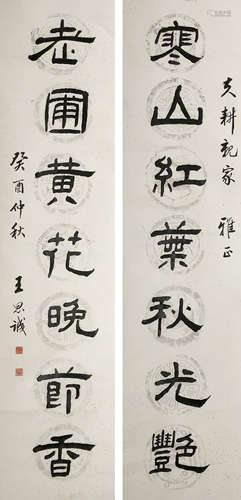 寒山紅葉秋光艷
老圃黃花晚節香
雅正
癸酉仲秋
王思誠